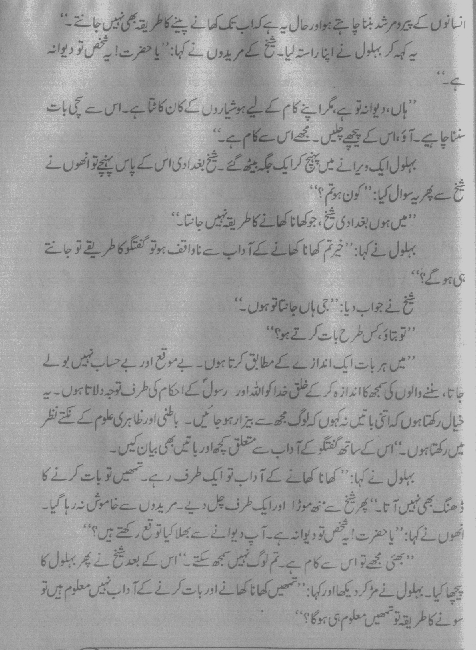 انسانوں کے پیر و مرشد بننا چاہتے ہو اور حال یہ ہے کہ اب تک کھانے پینے کا طریقہ بھی نہیں جانتے۔"
یہ کہہ کر بہلول نے اپنا راستہ لیا۔ شیخ کے مریدوں نے کہا: "یا حضرت! یہ شخص تو دیوانہ
ہے۔"
"ہاں، دیوانہ تو ہے، مگر اپنے کام کے لیے ہوشیاروں کے کان کاٹتا ہے۔ اس سے سچی بات
سننا چاہیے۔ آؤ، اس کے پیچھے چلیں۔ مجھے اس سے کام ہے۔"
بہلول ایک ویرانے میں پہنچ کر ایک جگہ بیٹھ گئے۔ شیخ بغدادی اس کے پاس پہنچے تو انھوں نے
شیخ سے پھر یہ سوال کیا: "کون ہو تم؟"
"میں ہوں بغدادی شیخ، جو کھانا کھانے کا طریقہ نہیں جانتا۔"
بہلول نے کہا: "خیر تم کھانا کھانے کے آداب سے ناواقف ہو تو گفتگو کا طریقہ تو جانتے
ہی ہو گے؟"
شیخ نے جواب دیا: "جی ہاں جانتا تو ہوں۔"
"تو بتاؤ، کس طرح بات کرتے ہو؟"
"میں ہر بات ایک اندازے کے مطابق کرتا ہوں۔ بے موقع اور بے حساب نہیں بولے
جاتا، سننے والوں کی سمجھ کا اندازہ کر کے خلق خدا کو اللہ اور رسولؐ کے احکام کی طرف توجہ دلاتا ہوں۔ یہ
خیال رکھتا ہوں کہ اتنی باتیں نہ کہوں کہ لوگ مجھ سے بیزار ہو جائیں۔ باطنی اور ظاہری علوم کے نکتے نظر
میں رکھتا ہوں۔" اس کے ساتھ گفتگو کے آداب سے متعلق کچھ اور باتیں بھی بیان کیں۔
بہلول نے کہا: "کھانا کھانے کے آداب تو ایک طرف رہے۔ تمھیں تو بات کرنے کا
ڈھنگ بھی نہیں آتا۔" پھر شیخ سے منھ موڑا اور ایک طرف چل دیے۔ مریدوں سے خاموش نہ رہا گیا۔
انھوں نے کہا: "یا حضرت! یہ شخص تو دیوانہ ہے۔ آپ دیوانے سے بھلا کیا توقع رکھتے ہیں؟"
"بھئی مجھے تو اس سے کام ہے۔ تم لوگ نہیں سمجھ سکتے۔" اس کے بعد شیخ نے پھر بہلول کا
پیچھا کیا۔ بہلول نے مڑ کر دیکھا اور کہا: "تمھیں کھانا کھانے اور بات کرنے کے آداب نہیں معلوم ہیں تو
سونے کا طریقہ تو تمھیں معلوم ہی ہو گا؟"